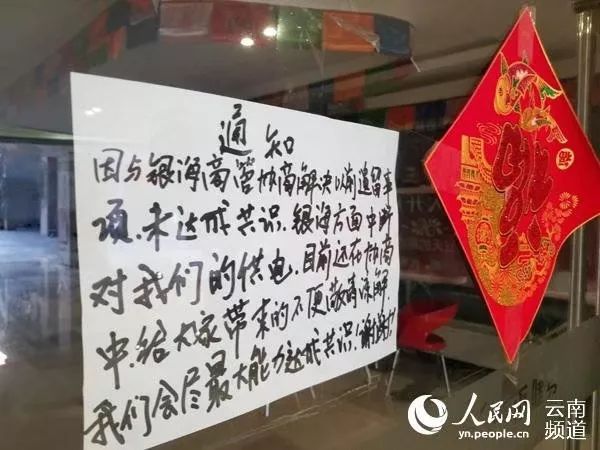 通知
因与银海高管协商解决以前遗留事
项,未达成共识.银海方面中断
对我们的供电.目前还在协商
中.给大家带来的不便敬请谅解.
我们会尽最大能力达成共识.谢谢!?
福
人民网 云南
yn.people.cn 频道